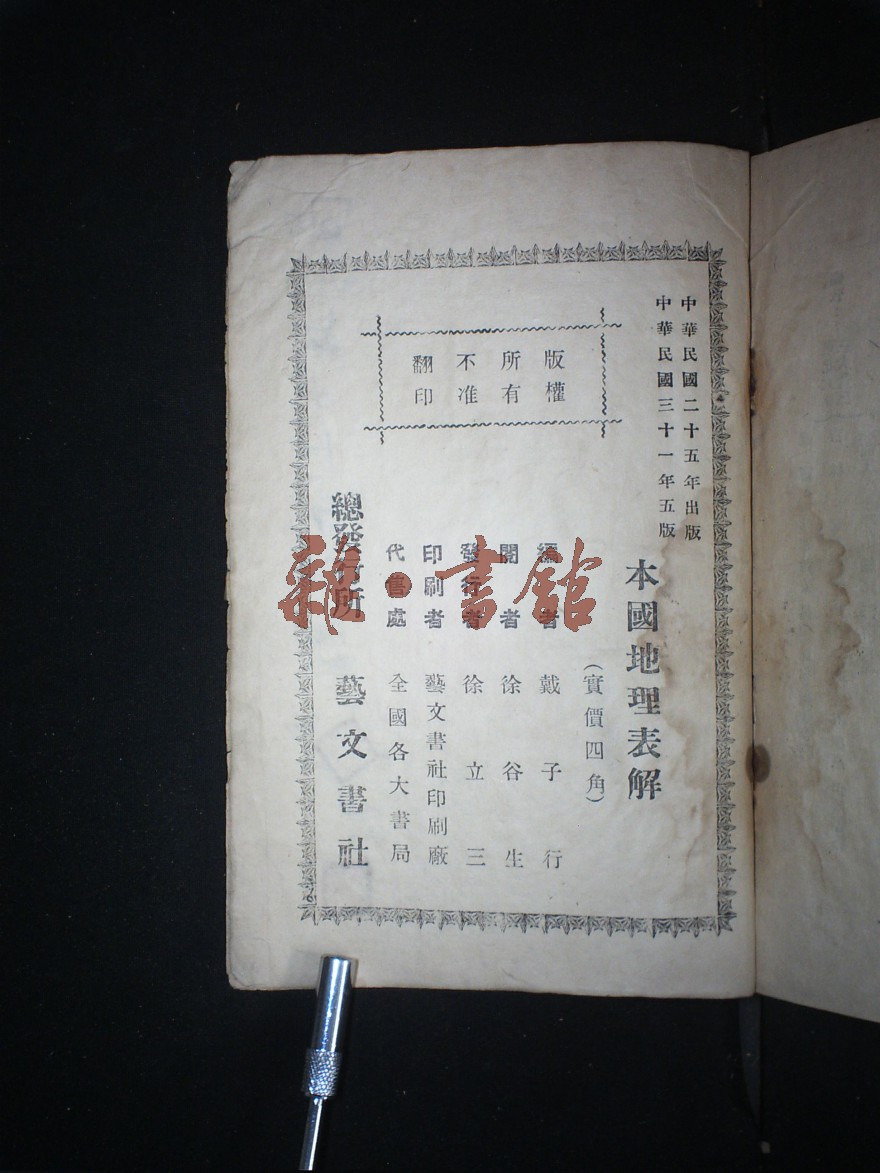 中華民國二十五年出版
中華民國三十一年五版
本國地理表解
(實價四角)
版權
所有
不准
翻印
編者 戴子行
閱者 徐谷生
發行者 徐立三
印刷者 藝文書社印刷廠
代售處 全國各大書局
總發行所 藝文書社
雜·書館